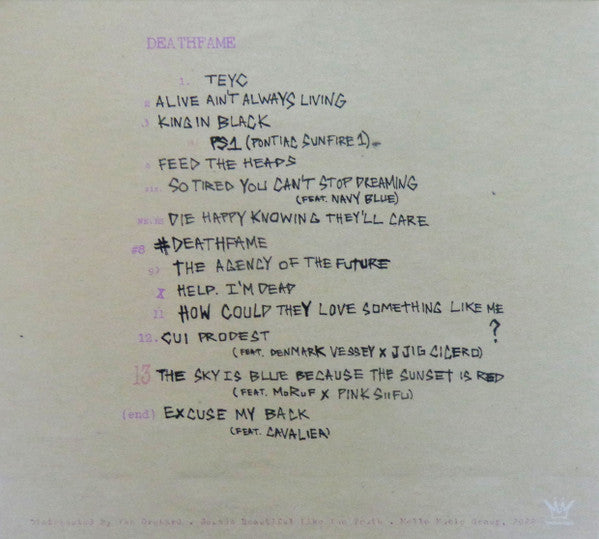 DEATHFAME
1. TEYC
2 ALIVE AIN'T ALWAYS LIVING
3 KING IN BLACK
PS1 (PONTIAC SUNFIRE 1)
FEED THE HEADS
six. SO TIRED YOU CAN'T STOP DREAMING
(FEAT. NAVY BLUE)
DIE HAPPY KNOWING THEY'LL CARE
#8 #DEATHFAME
9) THE AGENCY OF THE FUTURE
X HELP. I'M DEAD
11 HOW COULD THEY LOVE SOMETHING LIKE ME
?
12. CUI PRODEST
(FEAT. DENMARK VESSEY X JJIG CICERO)
13 THE SKY IS BLUE BECAUSE THE SUNSET IS RED
(FEAT. MoRuF X PINK SIIFU)
(end) EXCUSE MY BACK
(FEAT. CAVALIER)
Distributed By The Orchard . Sounds Beautiful Like The Truth . Mello Music Group, 2022